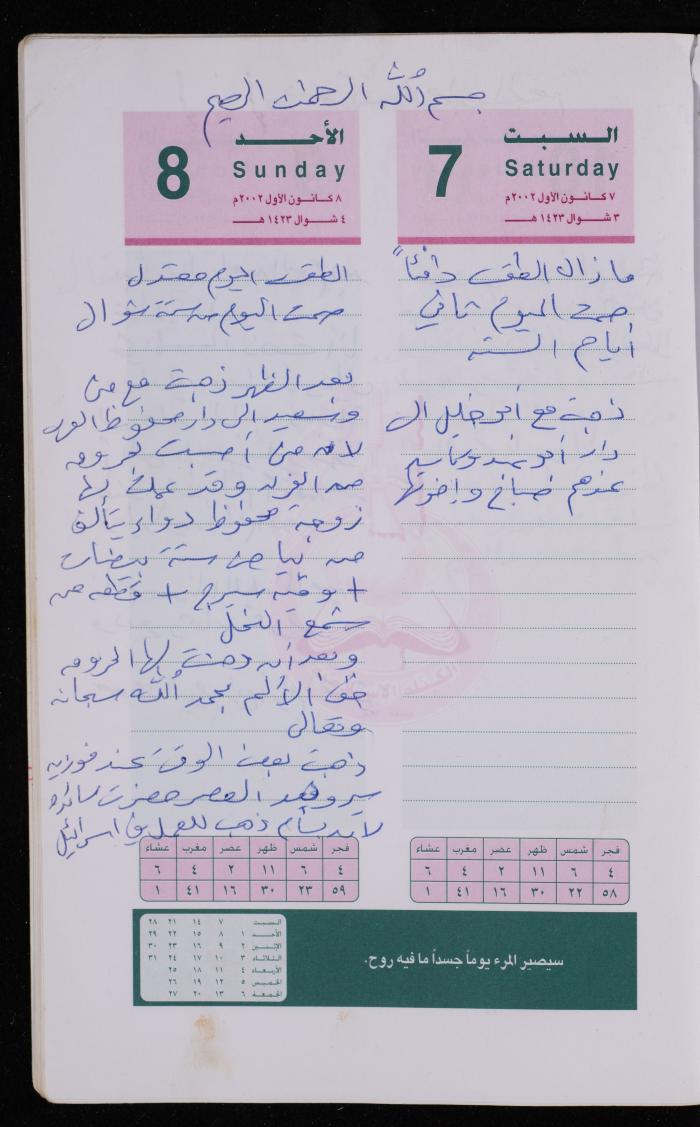 بسم الله الرحمن الرحيم
السبت
Saturday
7
٧ كانون الأول ٢٠٠٢م
٣ شوال ١٤٢٣ هـ
ما زال الطقس دافئاً
صمت اليوم ثاني
أيام الستة
ذهبت مع أبو خليل إلى
دار أبو
عندهم صباغ وإخوتها
فجر شمس ظهر عصر مغرب عشاء
٤ ٦ ١١ ٢ ٤ ٦
٥٨ ٢٢ ٣٠ ١٦ ٤١ ١
الأحد
Sunday
8
٨ كانون الأول ٢٠٠٢م
٤ شوال ١٤٢٣ هـ
الطقس اليوم معتدل
صمت اليوم من ستة شوال
بعد الظهر ذهبت مع
وسعيد إلى دار محفوظ
لأن أصيبت بحروق
من وقد عملت لها
زوجة محفوظ دواء يتألف
من بياض ستة بيضات
+ وقية سيرج + قطعة من
شمع النحل
وبعد أن دهنت لها الحروق
خف الألم بحمد الله سبحانه
وتعالى
ذهبت بعض الوقت عند فوزية
وبعد العصر حضرت
لأن بسام ذهب للعمل في اسرائيل
فجر شمس ظهر عصر مغرب عشاء
٤ ٦ ١١ ٢ ٤ ٦
٥٩ ٢٣ ٣٠ ١٦ ٤١ ١
سيصير المرء يوماً جسداً ما فيه روح.
السبت ٧ ١٤ ٢١ ٢٨
الأحد ١ ٨ ١٥ ٢٢ ٢٩
الإثنين ٢ ٩ ١٦ ٢٣ ٣٠
الثلاثاء ٣ ١٠ ١٧ ٢٤ ٣١
الأربعاء ٤ ١١ ١٨ ٢٥
الخميس ٥ ١٢ ١٩ ٢٦
الجمعة ٦ ١٣ ٢٠ ٢٧